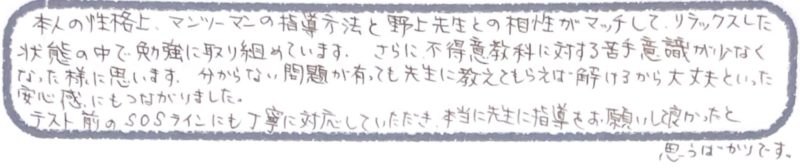 本人の性格上、マンツーマンの指導方法と野上先生との相性がマッチして、リラックスした
状態の中で勉強に取り組めています。さらに不得意教科に対する苦手意識が少なく
なった様に思います。分からない問題が有っても先生に教えてもらえば解けるから大丈夫といった
安心感にもつながりました。
テスト前のSOSラインにも丁寧に対応していただき、本当に先生に指導をお願いして良かったと
思うばかりです。